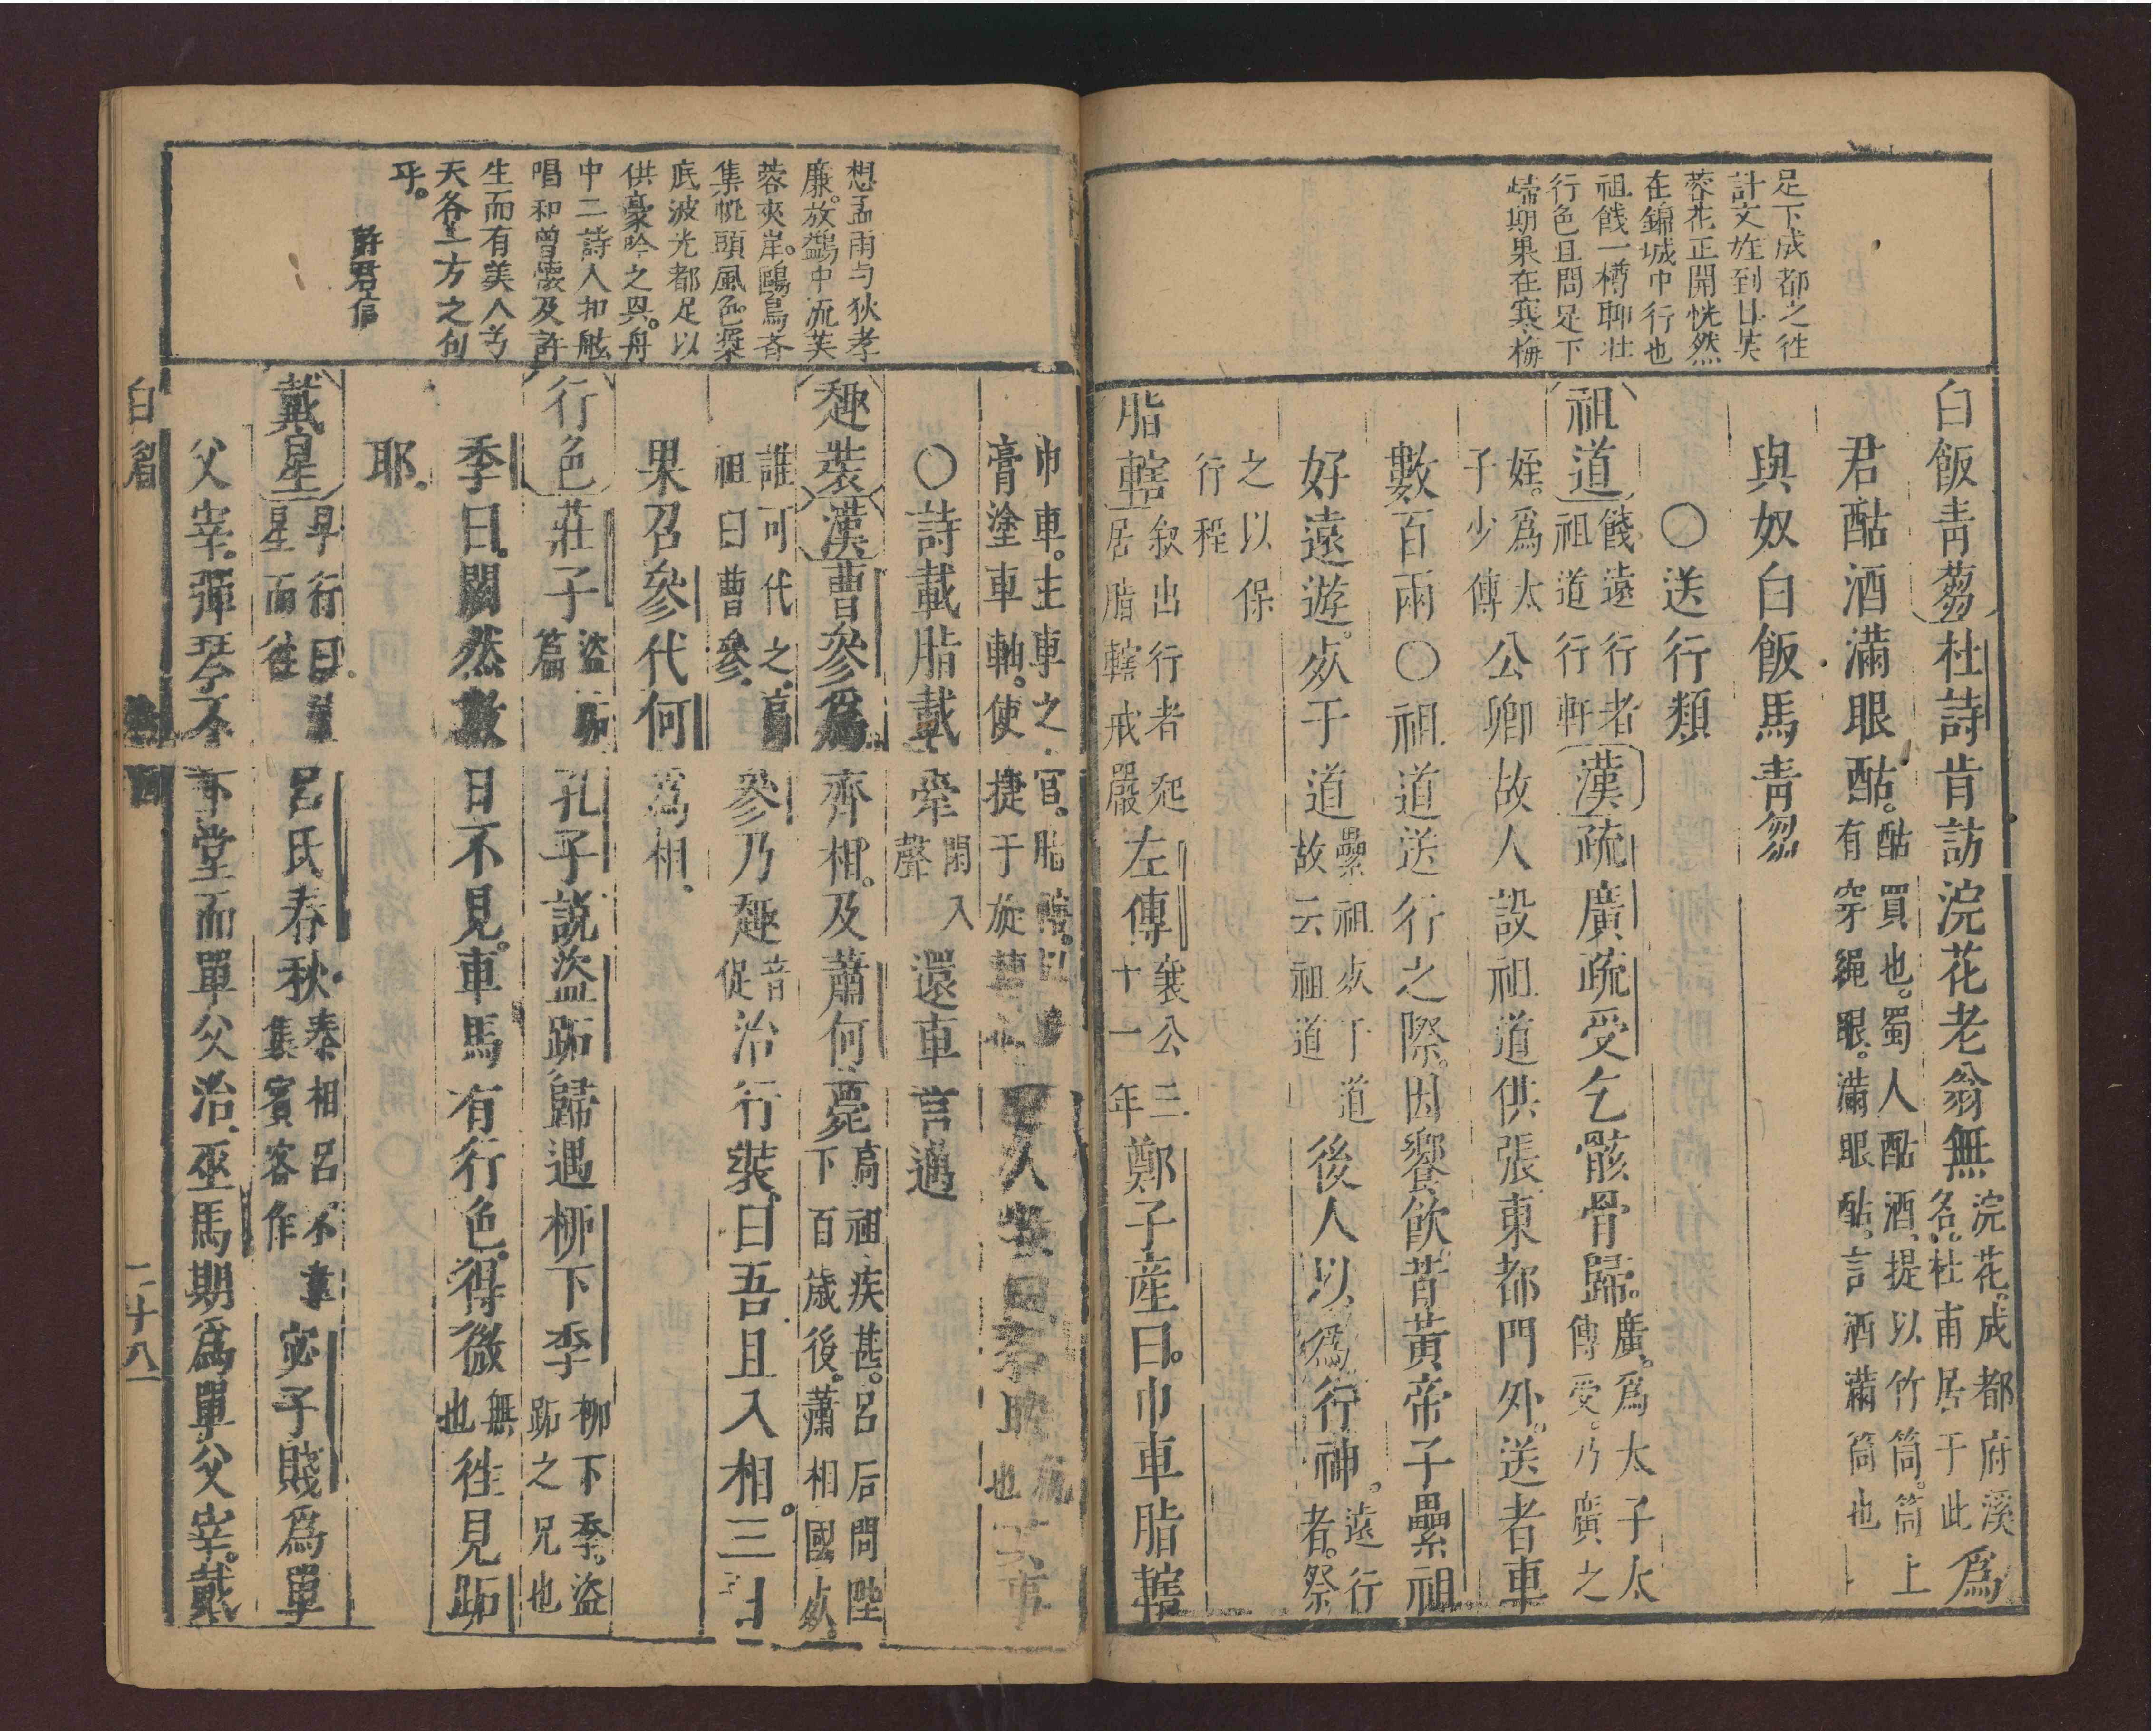 足下成都之往
計文旌到日芙
蓉花正開恍然
在錦城中行也
祖餞一樽聊壯
行色且問足下
歸期果在寒梅
白飯青芻杜詩肯訪浣花老翁無浣花。成都府溪名。杜甫居于此為
君酤酒滿眼酤。酤買也。蜀人酤酒。提以竹筒。筒上有穿繩眼。滿眼酤。言酒滿筒也
與奴白飯馬青芻
〇送行類
祖道餞遠行者祖道行軒漢疏廣疏受乞骸骨歸。廣。為太子太傅受。乃廣之
姪。為太子少傅公卿故人設祖道供張東都門外。送者車
數百兩〇祖道送行之際。因饗飲昔黃帝子纍祖
好遠遊。死于道纍祖死于道故云祖道後人以為行神。遠行者。祭
之以保行程
脂轄叙出行者起居脂轄戒嚴左傳襄公三十一年鄭子產曰。巾車脂轄
巾車。主車之官。脂轄。以膏塗車軸。使捷于旋轉
〇詩載脂載舝閑入聲還車言邁
趣裝漢曹參為齊相。及蕭何薨高祖疾甚。呂后問陛下百歲後。蕭相國死。
誰可代之。高祖曰曹參。參乃趣音促治行裝曰吾且入相。三日
果召參代何為相。
行色莊子盜跖篇孔子說盜跖歸遇柳下季柳下季。盜跖之兄也
季曰。闕然數日不見。車馬有行色。得微無也往見跖
耶。
戴星早行曰戴星而往呂氏春秋秦相呂不韋集賓客作宓子賤為單
父宰。彈琴不下堂而單父治。巫馬期為單父宰。戴
想孟雨与狄孝
廉。放鷁中流芙
蓉夾岸。鷗鳥斉
集帆頭風色。槳
底波光都足以
供豪吟之具。舟
中二詩人扣舷
唱和曾懷及許
生而有美人兮
天各一方之句
乎。
許君信
二十八